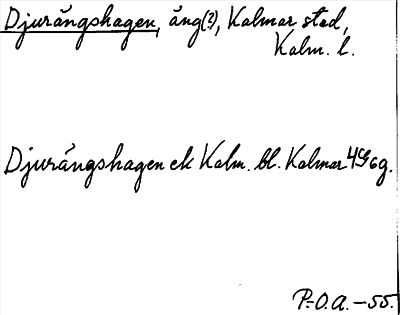 Djurängshagen, äng(?), Kalmar stad,
Kalm. l.
Djurängshagen ek Kalm. bl. Kalmar 4G6g.
P.-O.A. -55.